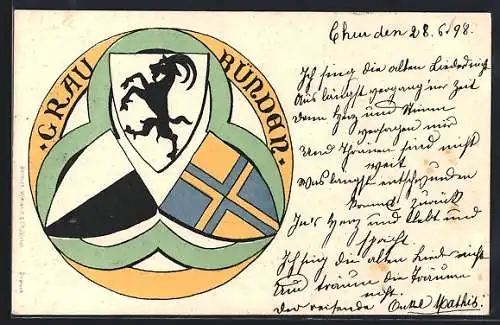 ·GRAU
BÜNDEN·
Chur den 28.6.98.
Ich sing die alten Lieder nicht
Aus längst vergang'ner Zeit
Denn Herz und Stimme
versagen mir
Und Thränen sind nicht
weit
Was längst entschwunden
kommt zurück
In's Herz und lebt und
spricht
Ich sing die alten Lieder nicht
Und träum die Träume
nicht.
der reisende Onkel Mathis.